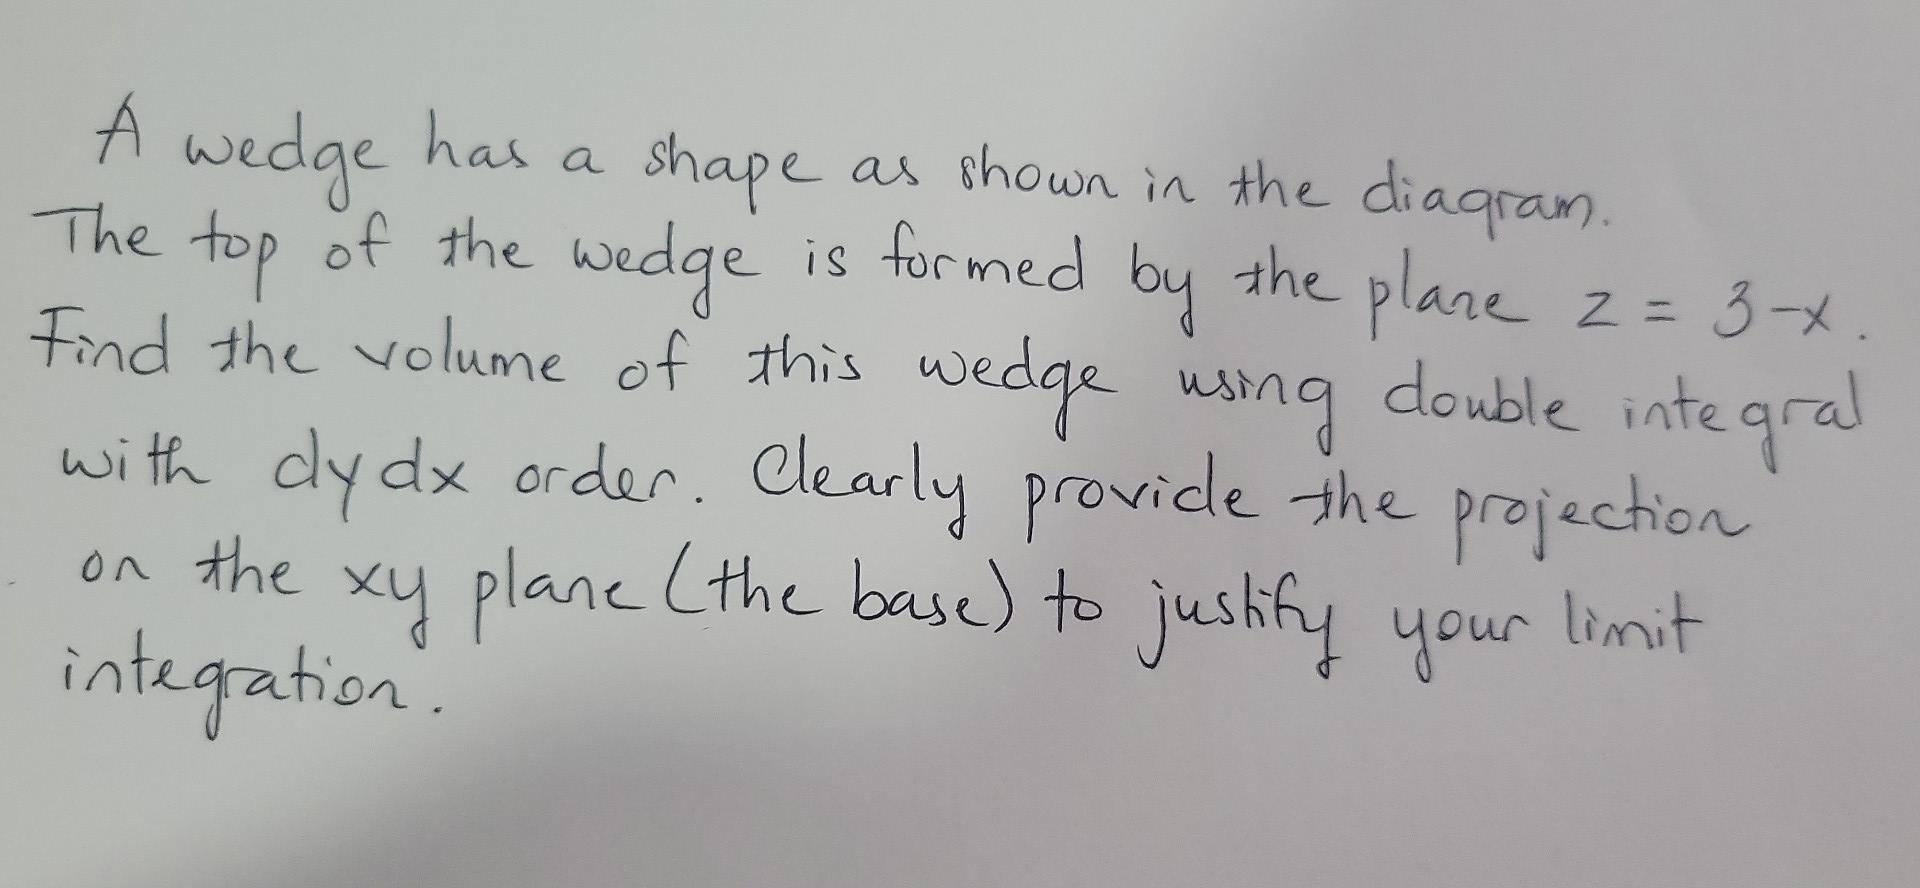 A wedge has a shape as shown in the diagram.
The top of the wedge is formed by the plane z = 3-x.
Find the volume of this wedge using double integral
with dydx order. Clearly provide the projection
on the xy plane (the base) to justify your limit
integration.